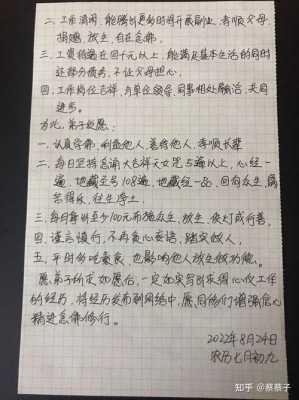 二、工作清闲，能腾出更多时间开展副业，孝顺父母，
捐赠，放生，自在念佛。
三、工资稍高在四千元以上，能满足基本生活的同时
还部分债务，不让父母担心。
四、工作岗位吉祥，与单位领导，同事相处融洽，共同
进步。
为此，弟子发愿：
一、认真学佛，利益他人，慈悲他人，孝顺长辈
二、每日坚持念诵大吉祥天女咒5遍以上，心经一
遍，地藏圣号108遍，地藏经一品，回向众生，离
苦得乐，往生净土
三、每月拿出至少100元布施众生，放生，供灯或行善。
四、谨言慎行，不再贪心妄语，踏实做人，
五、平时多吃素食，也影响他人放生做功德。
愿弟子所求如愿后，一定如实写出求得心仪工作
的经历，将经历发布到网络中，愿同修们增强信心
精进念佛修行。
2022年8月24日
农历七月初九
知乎 @蔡蔡子